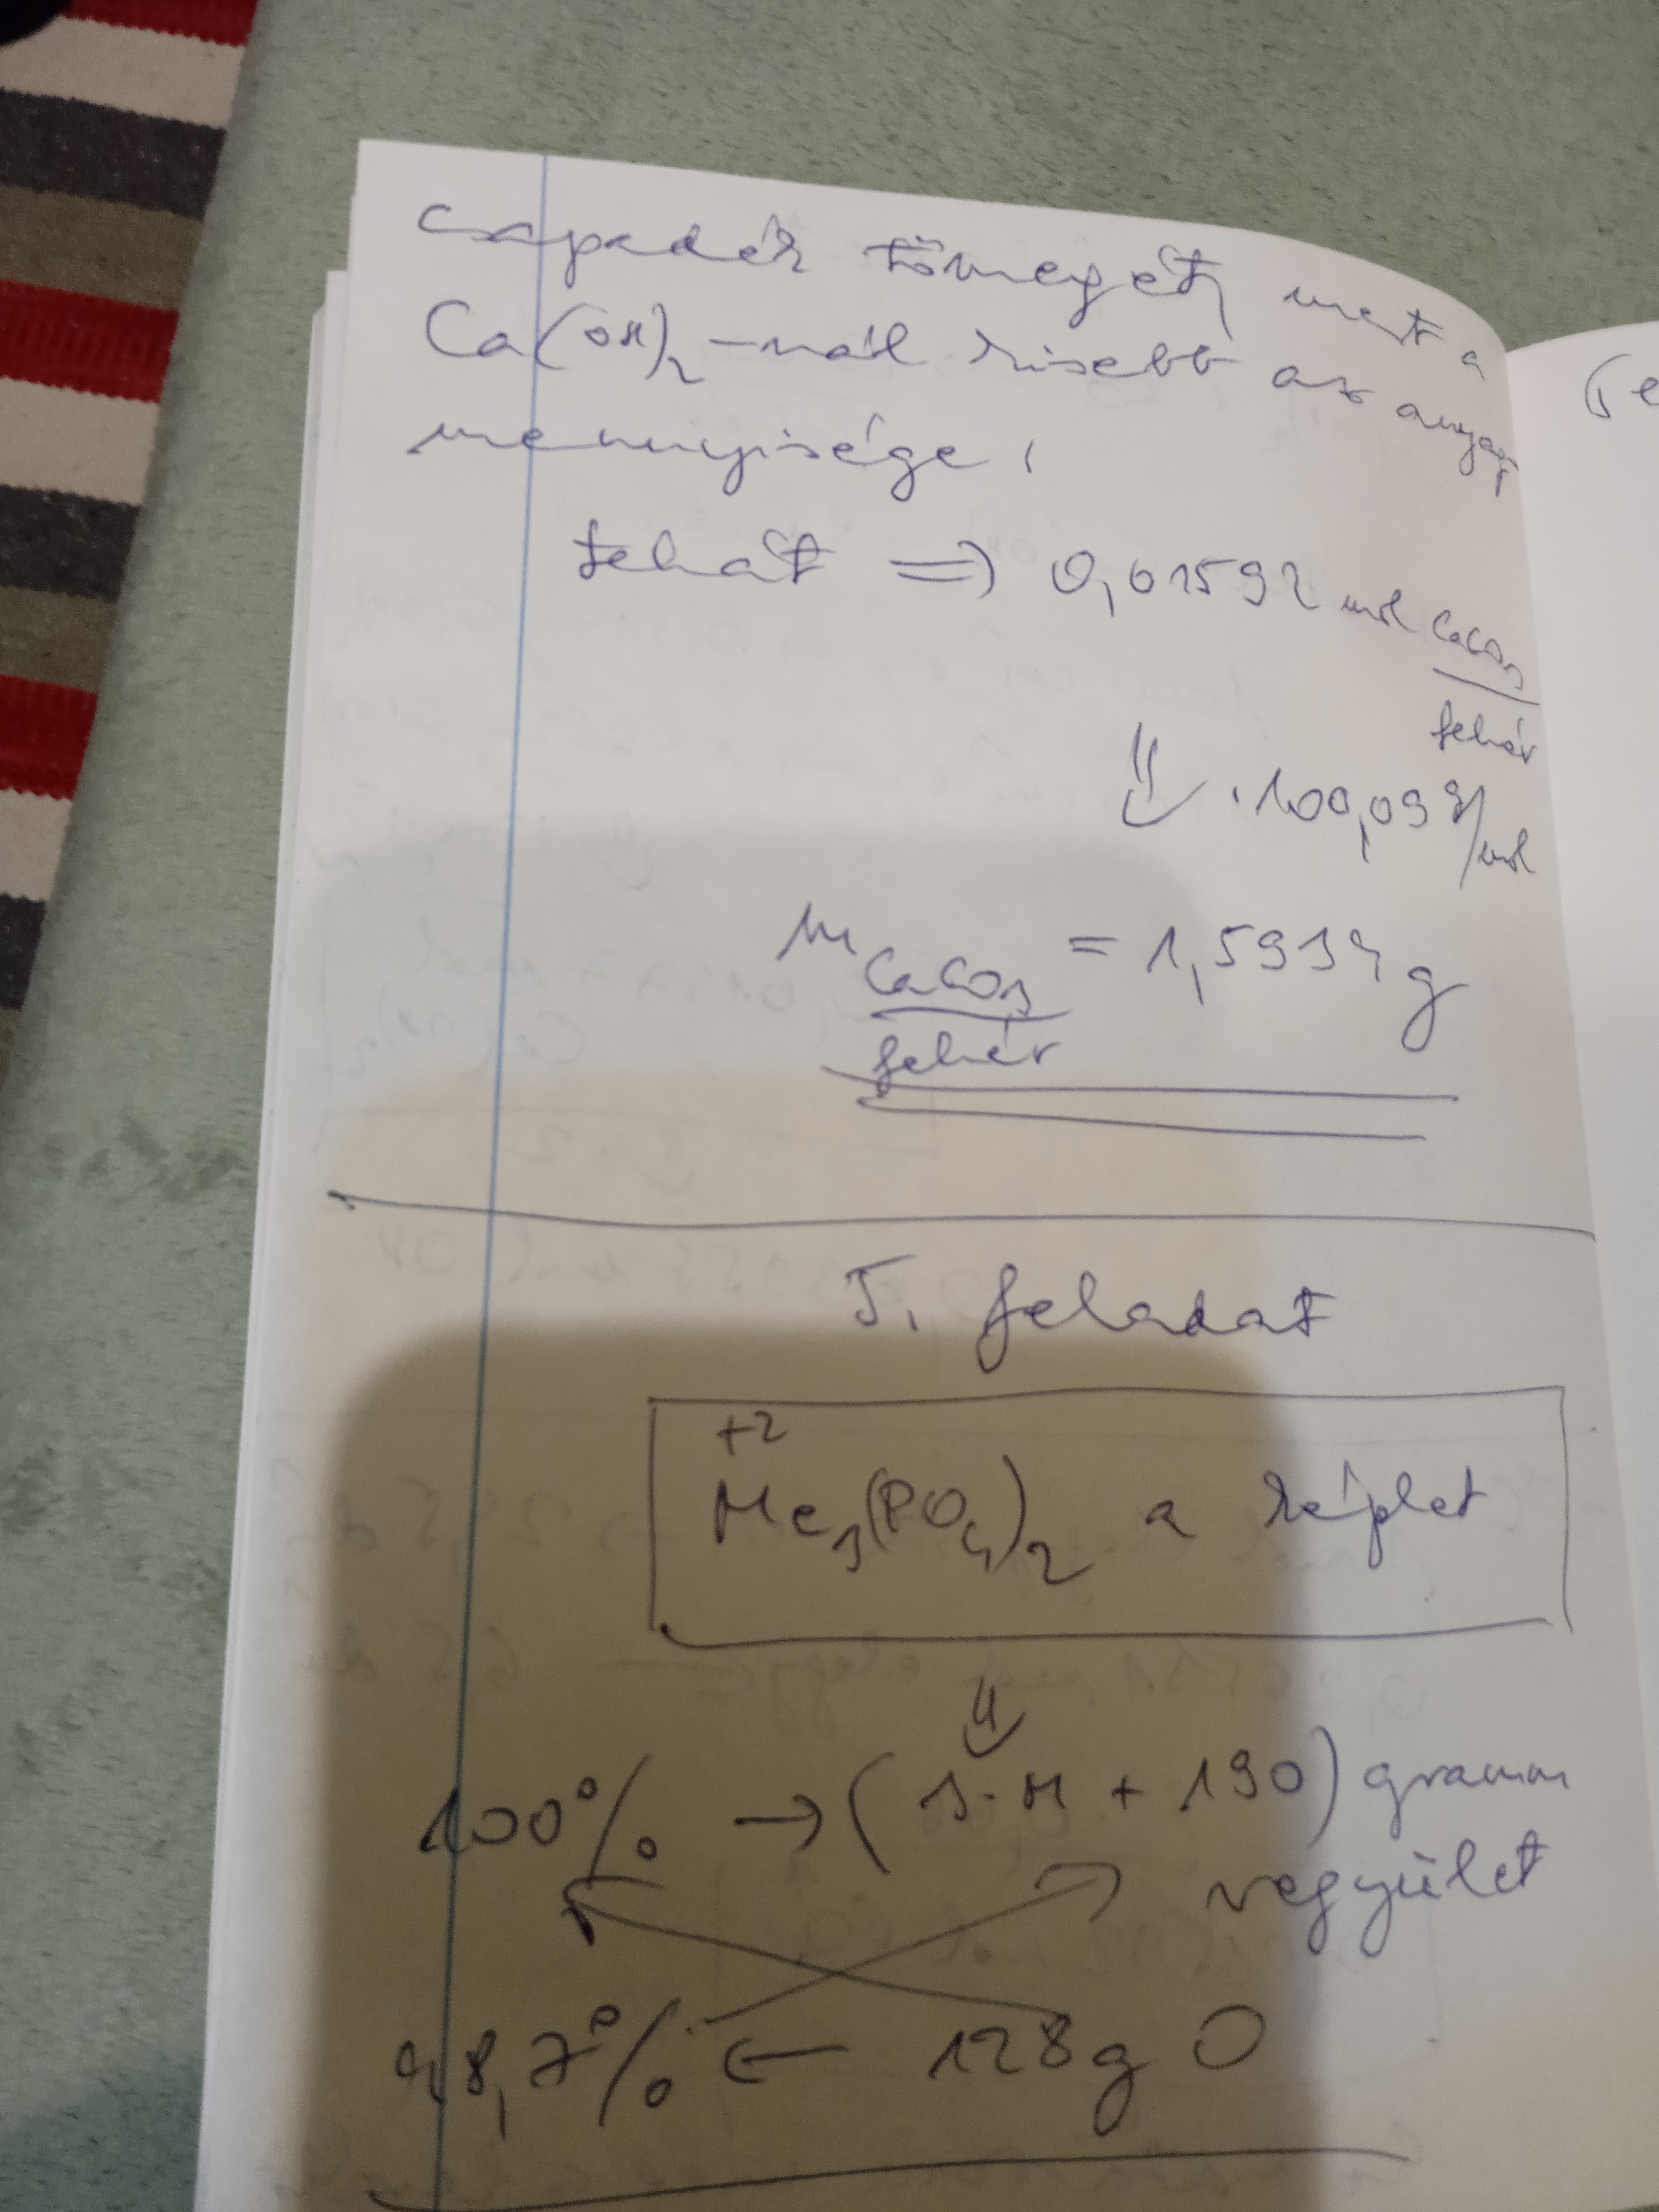 csapadék tömegét, mert a
Ca(OH)₂-nál kisebb az anyag
mennyisége.
tehát ⇒ 0,01592 mol CaCO₃
fehér
⇓ · 100,09 g/mol
m CaCO₃ = 1,5934 g
fehér
5. feladat
+2
Me₃(PO₄)₂ a képlet
⇓
100% → (3·M + 190) gramm
vegyület
48,7% ← 128 g O